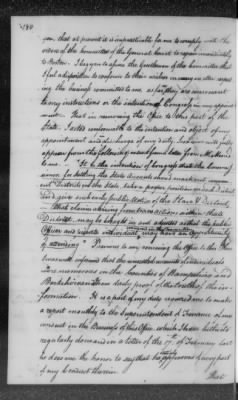 180
you that at present it is impracticable for me to comply with the
orders of the Committee of the General Court to repair immediately
to Boston. I beg you to assure the Gentlemen of the Committee that
I feel a disposition to conform to their wishes in every matter respect
ing the business committed to me so far as they are consonant
to my instructions or the intention of Congress in my appoint
ment. That in removing the Office to this part of the
State, I acted conformable to the intention and object of my
appointment and discharge of my duty. You now will fully
appear from the following paragraph of a Letter from Mr Morris
to me. It is the intention of Congress that the Commissi
oner for settling the State Accounts should make
ent Districts in the State, take a proper position in each District
and give such early public Notice of the Place &
that claims arising from transactions within that
District, may be brought in and adjusted whilst the public
Officers and reputable Individuals may have an Opportunity
of attending. Previous to my removing the Office to the
I was well informed that the of Individuals
were numerous in the Counties of Hampshire and
Berkshire and have daily proof of the truth of the in-
formation. It is a part of my duty required me to make
a report monthly to the Superintendant of Finance of my
conduct in the Business of this Office, which I have hitherto
regularly done and in a letter of the 17th of February last
he does me the honor to say that he approves of every part
of my Conduct therein
That